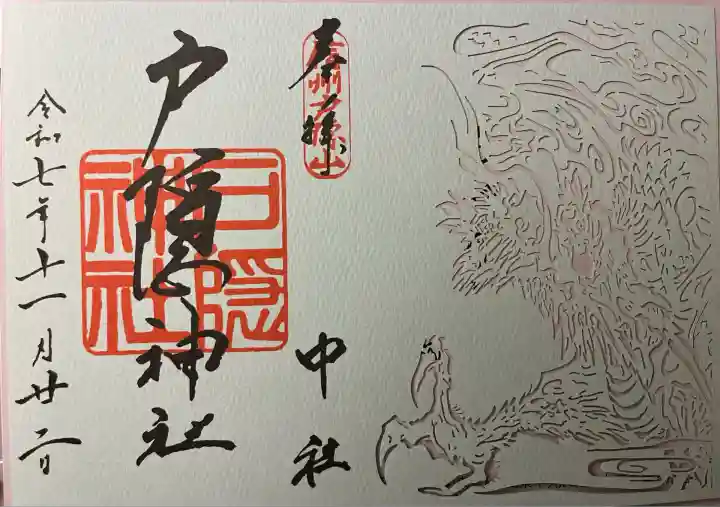 奉拝
信州戸隠山
中社
戸隠神社
戸隠神社
令和七年十一月廿二日